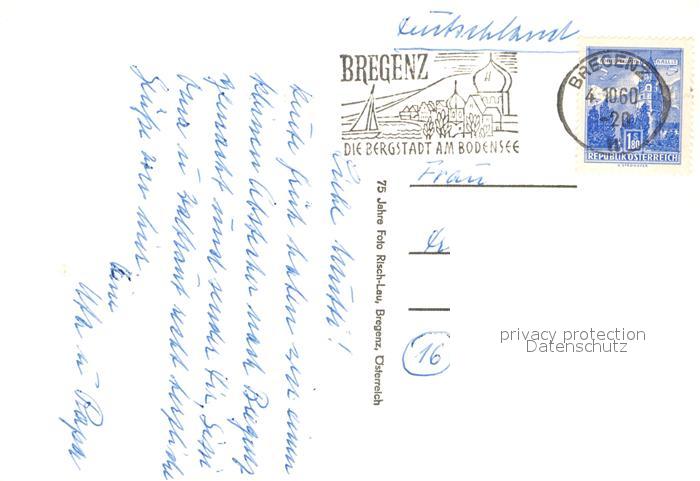 Deutschland
BREGENZ
DIE BERGSTADT AM BODENSEE
BREGENZ
4.10.60
-20
1.80
REPUBLIK ÖSTERREICH
Frau
Dr
16
privacy protection
Datenschutz
75 Jahre Foto Risch-Lau, Bregenz, Österreich
Liebe Mutti!
Heute früh haben wir einen
kleinen Abstecher nach Bregenz
gemacht und senden Dir,
und recht herzliche
Grüße von hier.
Deine
u. Papa